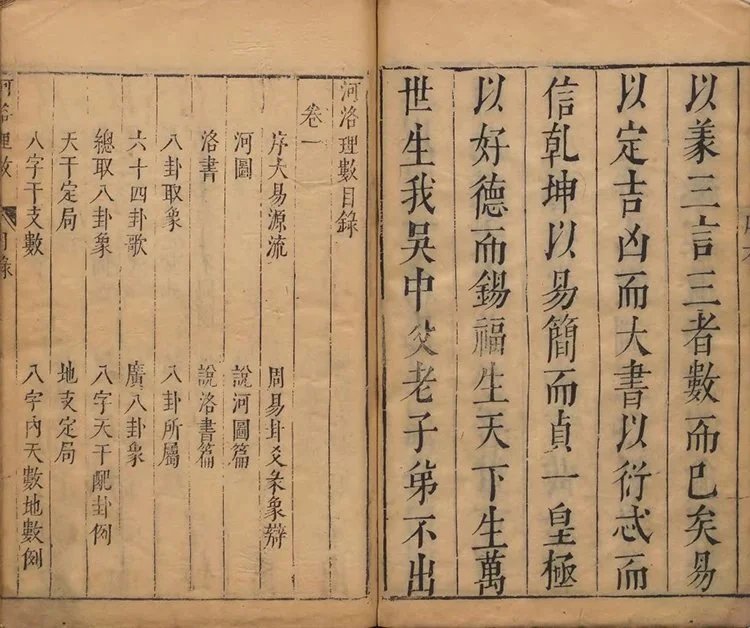 以彖三言三者數而已矣易
以定吉凶而大書以衍忒而
信乾坤以易簡而貞一皇極
以好德而錫福生天下生萬
世生我吳中父老子弟不出
河洛理數目錄
卷一
序大易源流 周易卦爻彖象辯
河圖 說河圖篇
洛書 說洛書篇
八卦取象 八卦所屬
六十四卦歌 廣八卦象
總取八卦象 八字天干配卦例
天干定局 地支定局
八字干支數 八字內天數地數例
河洛理數 目錄